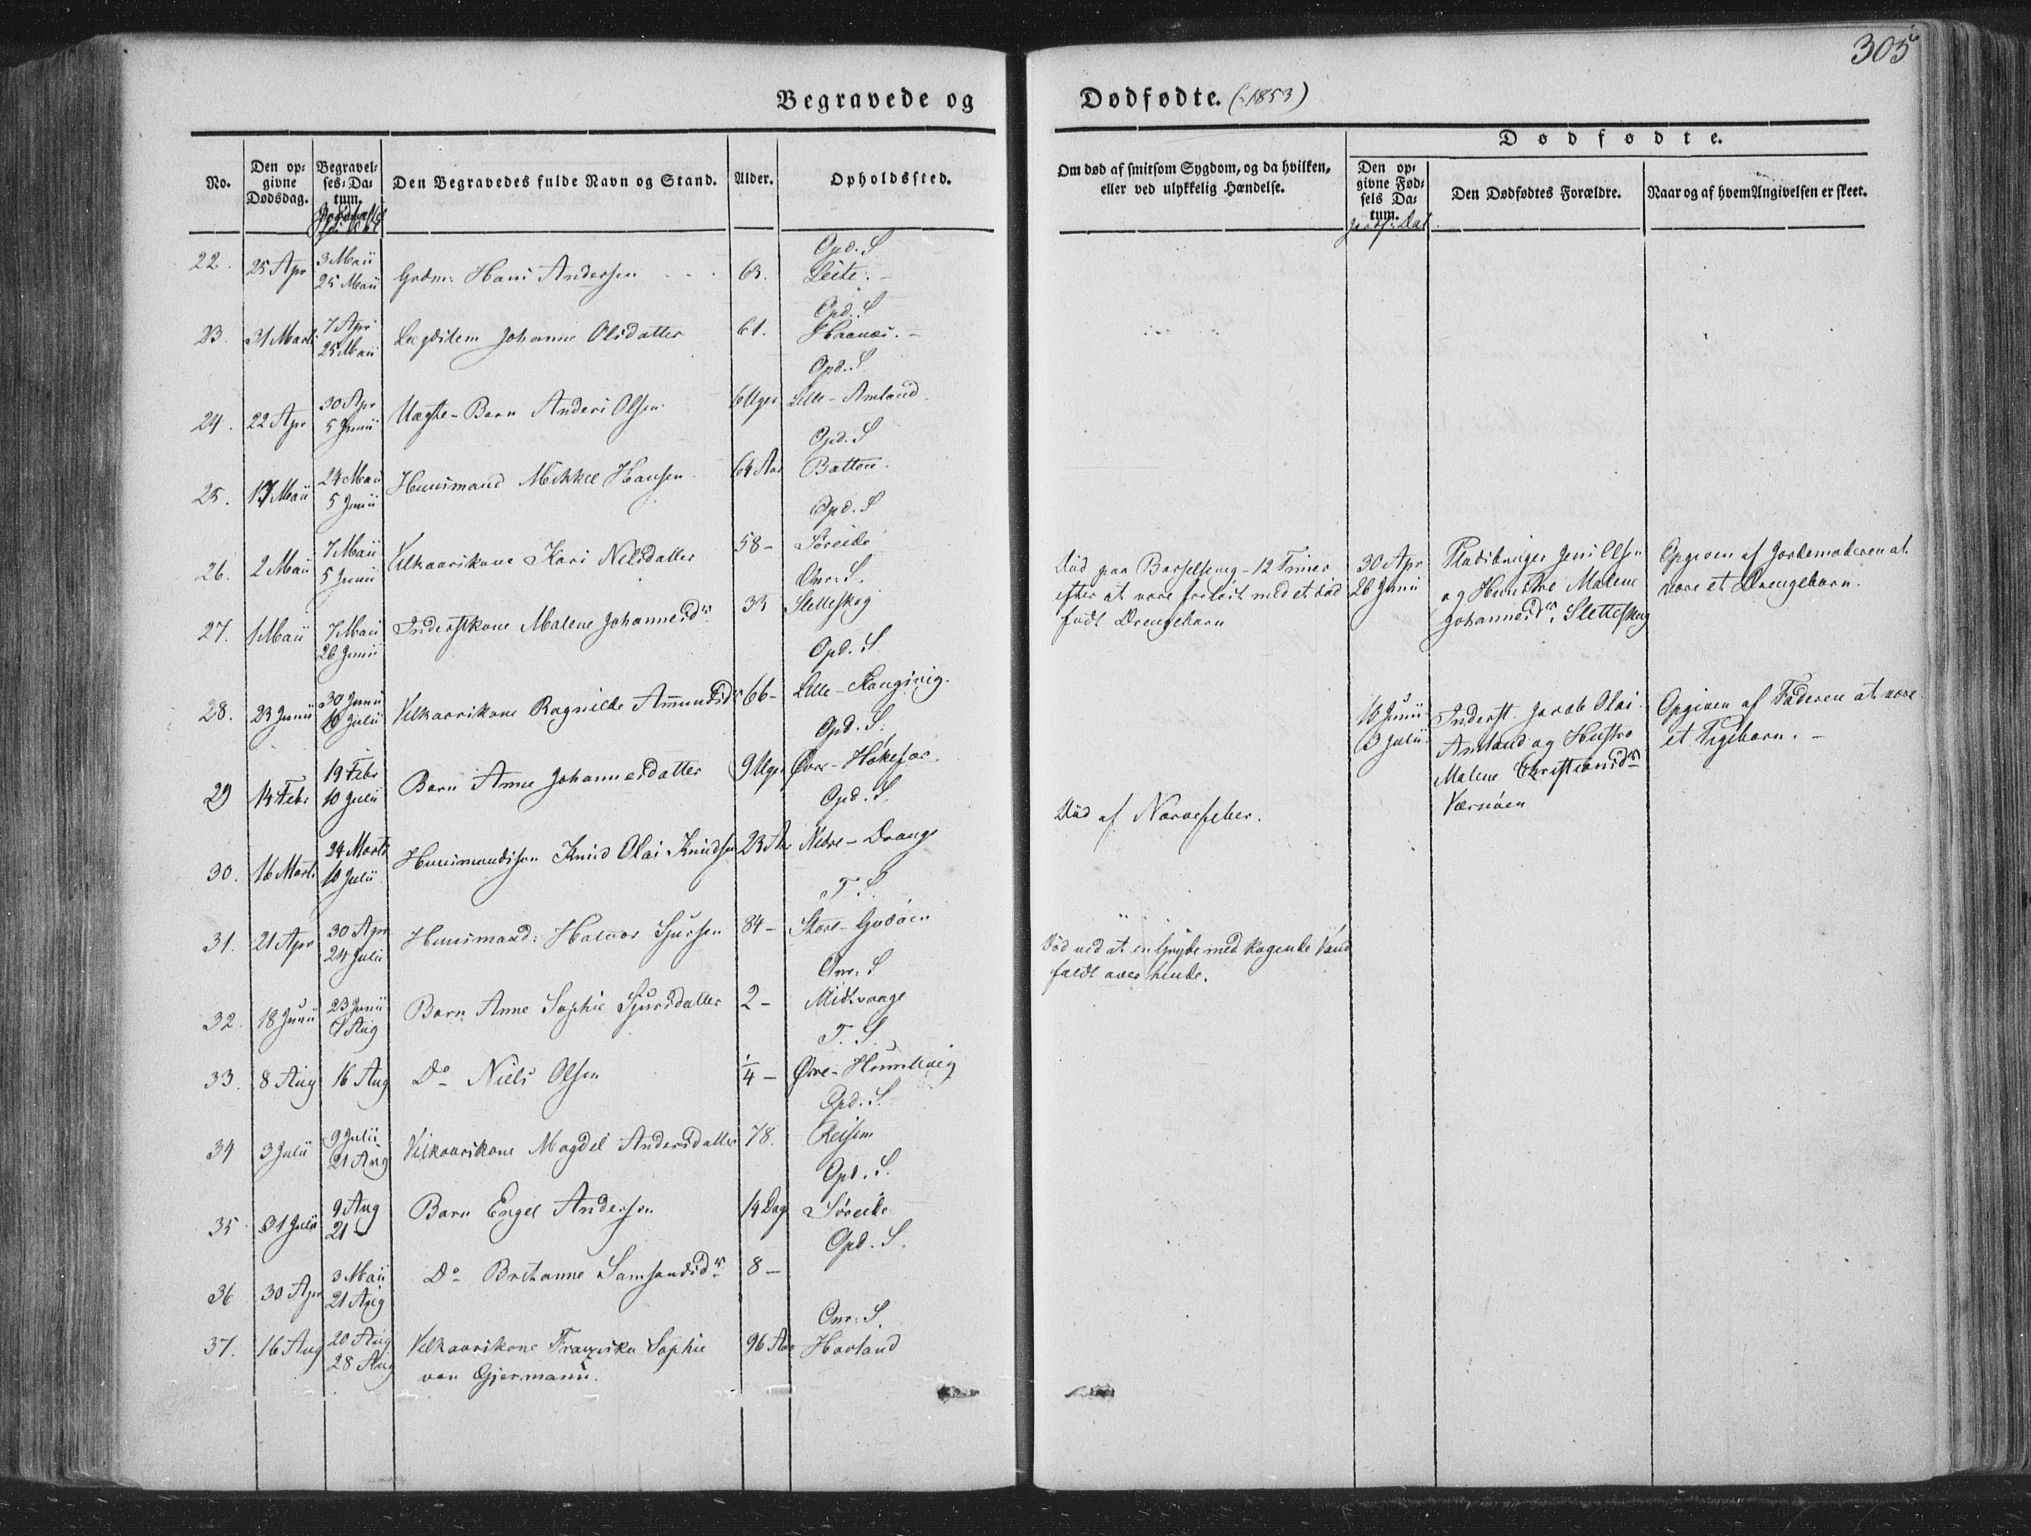 305
Begravede og Dødfødte. (:1853)
No.
Den op-
givne
Dødsdag.
Begravel-
ses-Da-
tum.
Den Begravedes fulde Navn og Stand.
Alder.
Opholdssted.
Om død af smitsom Sygdom, og da hvilken,
eller ved ulykkelig Hændelse.
Dødfødte.
Den op-
givne Fød-
sels Da-
tum.
Jordf: Dat.
Den Dødfødtes Forældre.
Naar og af hvem Angivelsen er skeet.
Opd. S
22. 25 Apr 3 Maii Grdm: Hans Andersen 63. Leite. -
25 Maii
Opd. S
23. 31 Marti 7 Apr Lægdslem Johanne Olsdatter 61. Haanes. -
25 Maii
Opd. S
24. 22 Apr 30 Apr Uægte-Barn Anders Olsen 6 Uger Lille-Amland
5 Junii
Opd. S
25. 17 Maii 24 Maii Huusmand Mikkel Hansen 64 Aar Batten.
5 Junii
Opd. S
26. 2 Maii 7 Maii Vilkaarskone Kari Nilsdatter 58- Søreide
5 Junii
Omr: S.
27. 1 Maii 7 Maii Inderstkone Malene Johannesdr 33 Sletteskog
26 Junii
Død paa Barselseng - 12 Timer
efter at være forløst med et død
født Drengebarn
30 Apr
26 Junii
Pladsbruger Jens Olsen
og Hustro Malene
Johannesdr Sletteskog
Opgiven af Jordemoderen at
være et Drengebarn.
Opd. S.
28. 23 Junii 30 Junii Vilkaarskone Ragnilde Amundsdr 66- Lille-
10 Julii
16 Junii
3 Julii
Inderst. Jacob Olai
Amland og Hustro
Malene Christiansdr
Værnøen
Opgiven af Faderen at være
et Pigebarn. -
Opd. S.
29 14 Febr 19 Febr Barn Anne Johannesdatter 9 Uger Øvre-
10 Julii
Opd. S.
30. 16 Marti 24 Marti Huusmandssøn Knud Olai Knudsen 23 Aar Nedre-Drange
10 Julii
Død af Nervefeber.
T. S.
31. 21 Apr 30 Apr Huusmand: Halvor Sjursen 84- Store-Godøen
24 Julii
" "
Omr. S
32. 18 Junii 23 Junii Barn Anne Sophie Sjursdatter 2- Midtvaage
7 Aug
Død ved at en Gryde med kogende Vand
faldt over hende.
T. S.
33. 8 Aug 16 Aug Do Niels Olsen 1/4- Øvre-Humlevig
Opd. S.
34 3 Julii 9 Julii Vilkaarskone Magdel Andersdatter 78. Reisem
21 Aug
Opd. S.
35 31 Julii 9 Aug Barn Engel Andersen 14 Dag Søreide
21 -
Opd. S.
36 30 Apr 3 Maii Do Britanne Samsonsdr 8-
21 Aug
Omr: S.
37. 16 Aug 20 Aug Vilkaarskone Franziska Sophie 96 Aar Hovland
28 Aug von Gjermann.